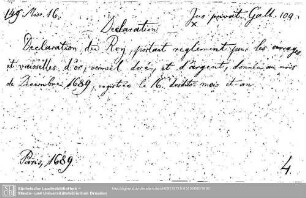 149 Misc. 16.
Jus privat. Gall. 109.
Declaration
Declaration du Roy, portant reglement pour les ouvrages
et vaisselles d'or, vermeil doré, et d'argent, donnée au mois
de Decembre 1689, registrée le 16. desdits mois et an.
Paris, 1689.
4.